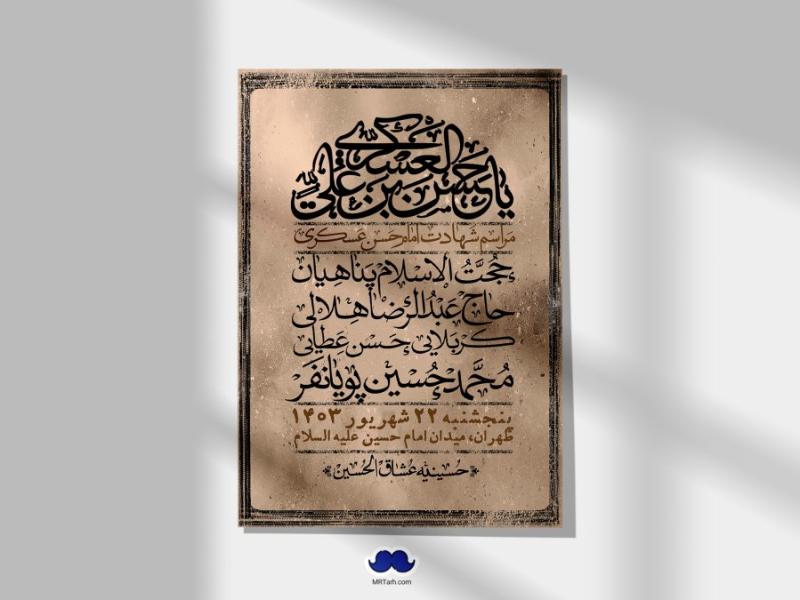 یا حسن بن علیٍّ العسکری
مراسم شهادت امام حسن عسکری
حُجَّتُ الاسلام پناهیان
حاج عَبدُالرضا هلالی
کربلایی حَسَن عَطایی
مُحَمَّد حُسین پویانفَر
پنجشنبه ۲۲ شهریور ۱۴۰۳
طهران، میدان امام حسین علیه السلام
حُسینیّه عُشاقُ الحُسین
MRTarh.com